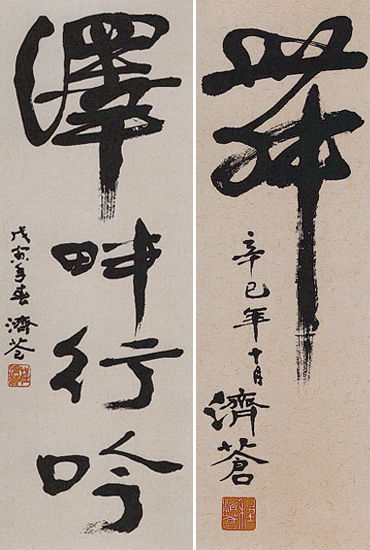 舞
辛巳年十月
濟蒼
澤畔行吟
戊寅年春
濟蒼